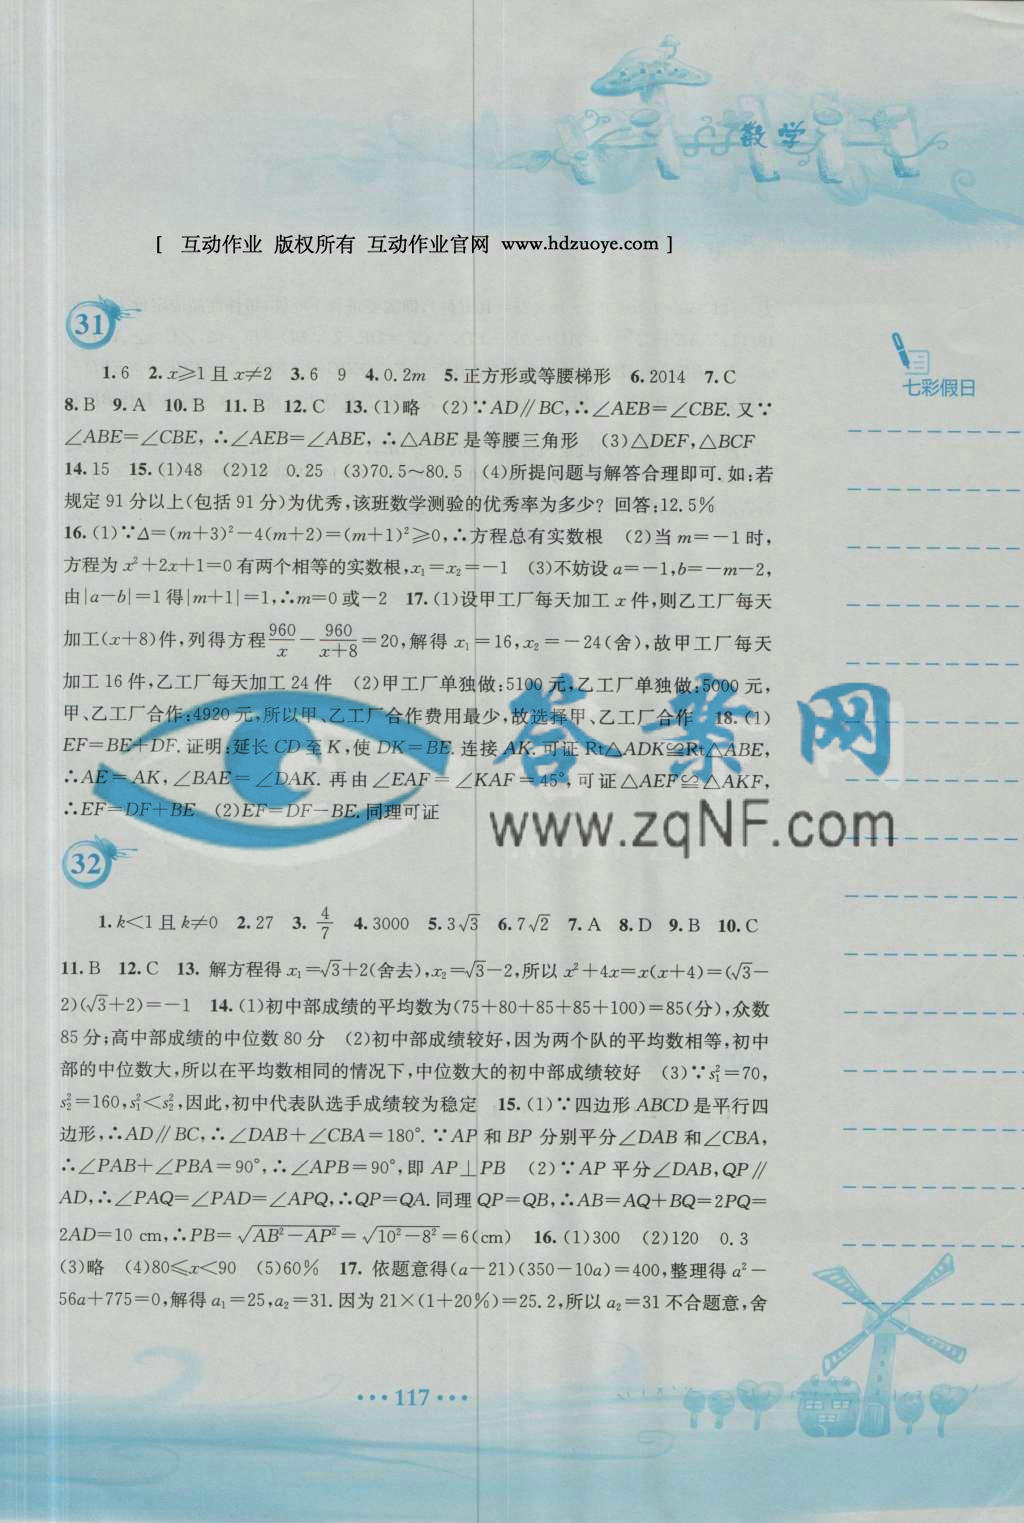 数学
[ 互动作业 版权所有 互动作业官网 www.hdzuoye.com ]
31
七彩假日
1.6 2.x⩾1且x≠2 3.6 9 4.0.2m 5.正方形或等腰梯形 6.2014 7.C
8.B 9.A 10.B 11.B 12.C 13.(1)略 (2)∵AD∥BC,∴∠AEB=∠CBE.又∵
∠ABE=∠CBE,∴∠AEB=∠ABE,∴△ABE是等腰三角形 (3)△DEF,△BCF
14.15 15.(1)48 (2)12 0.25 (3)70.5~80.5 (4)所提问题与解答合理即可.如:若
规定91分以上(包括91分)为优秀,该班数学测验的优秀率为多少?回答:12.5%
16.(1)∵Δ=(m+3)²-4(m+2)=(m+1)²⩾0,∴方程总有实数根 (2)当m=-1时,
方程为x²+2x+1=0有两个相等的实数根,x₁=x₂=-1 (3)不妨设a=-1,b=-m-2,
由|a-b|=1得|m+1|=1,∴m=0或-2 17.(1)设甲工厂每天加工x件,则乙工厂每天
加工(x+8)件,列得方程960/x-960/(x+8)=20,解得x₁=16,x₂=-24(舍),故甲工厂每天
加工16件,乙工厂每天加工24件 (2)甲工厂单独做:5100元,乙工厂单独做:5000元,
甲、乙工厂合作:4920元,所以甲、乙工厂合作费用最少,故选择甲、乙工厂合作 18.(1)
EF=BE+DF.证明:延长CD至K,使DK=BE.连接AK.可证Rt△ADK≌Rt△ABE,
∴AE=AK,∠BAE=∠DAK.再由∠EAF=∠KAF=45°,可证△AEF≌△AKF,
∴EF=DF+BE (2)EF=DF-BE.同理可证
答案网
www.zqNF.com
32
1.k<1且k≠0 2.27 3.4/7 4.3000 5.3√3 6.7√2 7.A 8.D 9.B 10.C
11.B 12.C 13.解方程得x₁=√3+2(舍去),x₂=√3-2,所以x²+4x=x(x+4)=(√3-
2)(√3+2)=-1 14.(1)初中部成绩的平均数为(75+80+85+85+100)=85(分),众数
85分;高中部成绩的中位数80分 (2)初中部成绩较好,因为两个队的平均数相等,初中
部的中位数大,所以在平均数相同的情况下,中位数大的初中部成绩较好 (3)∵s₁²=70,
s₂²=160,s₁²<s₂²,因此,初中代表队选手成绩较为稳定 15.(1)∵四边形ABCD是平行四
边形,∴AD∥BC,∴∠DAB+∠CBA=180°.∵AP和BP分别平分∠DAB和∠CBA,
∴∠PAB+∠PBA=90°,∴∠APB=90°,即AP⊥PB (2)∵AP平分∠DAB,QP∥
AD,∴∠PAQ=∠PAD=∠APQ,∴QP=QA.同理QP=QB,∴AB=AQ+BQ=2PQ=
2AD=10 cm,∴PB=√(AB²-AP²)=√(10²-8²)=6(cm) 16.(1)300 (2)120 0.3
(3)略 (4)80⩽x<90 (5)60% 17.依题意得(a-21)(350-10a)=400,整理得a²-
56a+775=0,解得a₁=25,a₂=31.因为21×(1+20%)=25.2,所以a₂=31不合题意,舍
···117···